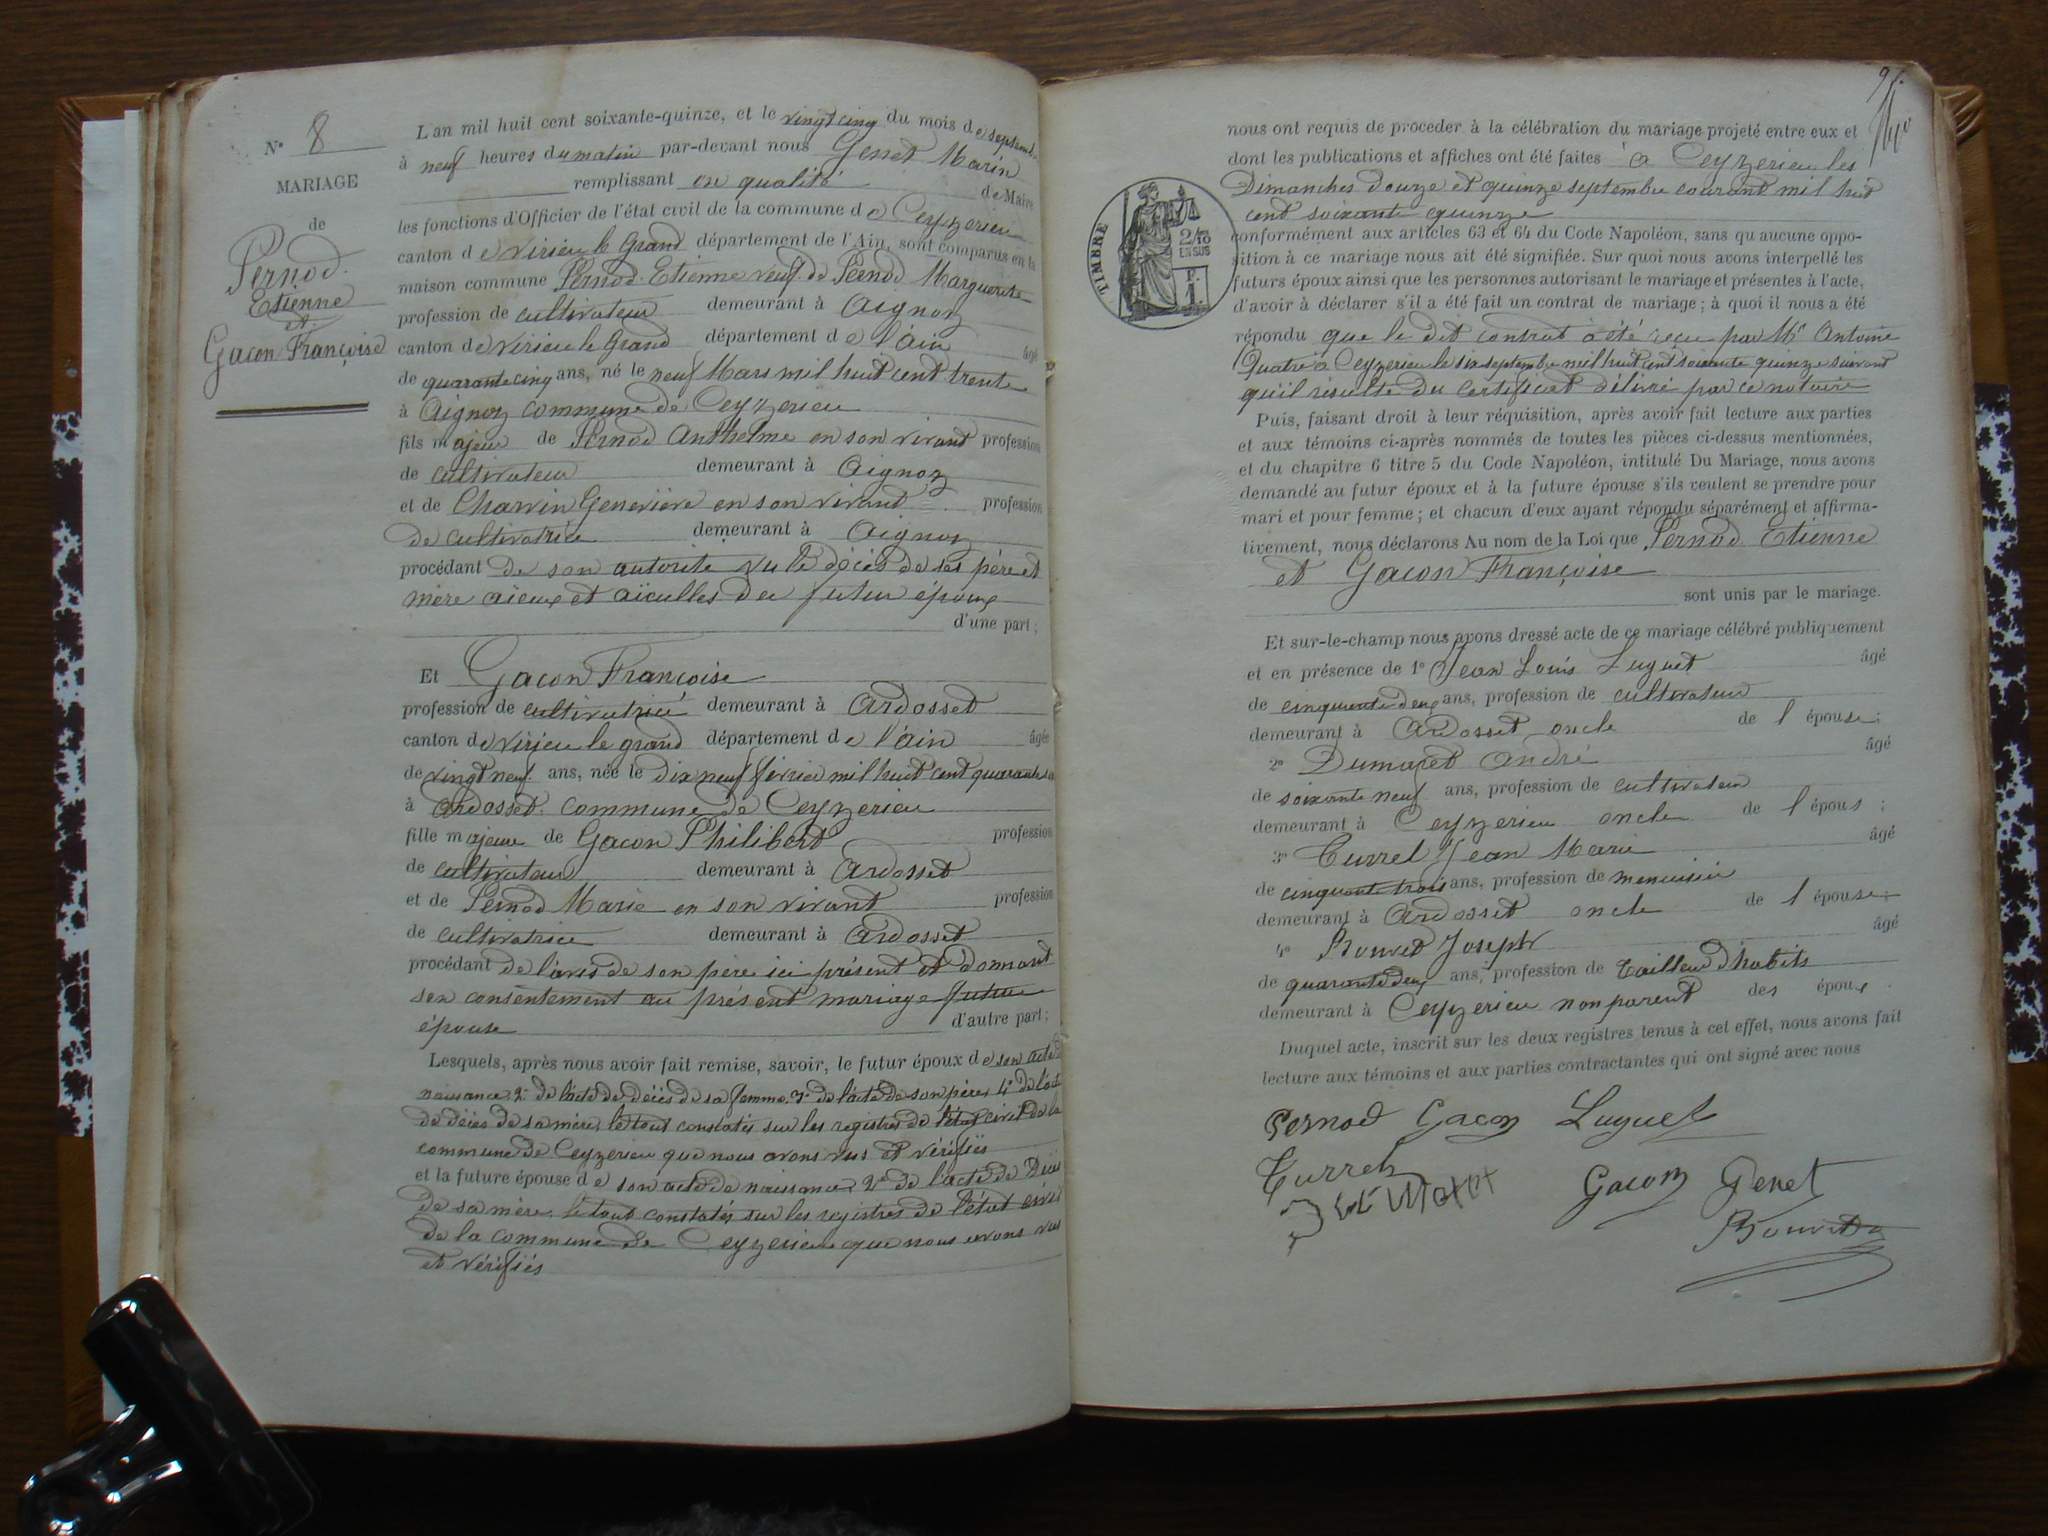 N° 8
MARIAGE
de
Pernod
Etienne
et
Gacon Françoise
L'an mil huit cent soixante-quinze, et le vingt cinq du mois de septemb
à neuf heures du matin par-devant nous Genet Marin
remplissant en qualité de Maire
les fonctions d'Officier de l'état civil de la commune de Ceyzerieu
canton de Virieu le Grand département de l'Ain, sont comparus en la
maison commune Pernod Etienne veuf de Pernod Marguerite
profession de cultivateur demeurant à Aignoz
canton de Virieu le Grand département de l'ain âgé
de quarante cinq ans, né le neuf Mars mil huit cent trente
à Aignoz commune de Ceyzerieu
fils majeur de Pernod Anthelme en son vivant profession
de cultivateur demeurant à Aignoz
et de Charvin Geneviève en son vivant profession
de cultivatrice demeurant à Aignoz
procédant de son autorité vu le décès de ses père et
mère aïeux et aïeulles du futur époux
d'une part;
Et Gacon Françoise
profession de cultivatrice demeurant à Ardosset
canton de Virieu le grand département de l'ain âgée
de vingt neuf ans, née le dix neuf février mil huit cent quarante six
à Ardosset commune de Ceyzerieu
fille majeure de Gacon Philibert profession
de cultivateur demeurant à Ardosset
et de Pernod Marie en son vivant profession
de cultivatrice demeurant à Ardosset
procédant de l'avis de son père ici présent et donnant
son consentement au présent mariage future
épouse d'autre part;
Lesquels, après nous avoir fait remise, savoir, le futur époux de son acte de
naissance 2° de l'acte de décès de sa femme 3° de l'acte de son père 4° de l'acte
de décès de sa mère, le tout constatés sur les registres de l'état civil de la
commune de Ceyzerieu que nous avons vus et vérifiés
et la future épouse de son acte de naissance 2° de l'acte de Décès
de sa mère le tout constatés sur les registres de l'état civil
de la commune de Ceyzerieu que nous avons vus
et vérifiés
91.
nous ont requis de proceder à la célébration du mariage projeté entre eux et
dont les publications et affiches ont été faites à Ceyzerieu les
Dimanches douze et quinze septembre courant mil huit
cent soixante quinze
TIMBRE
2/10
EN SUS
F.
1.
conformément aux articles 63 et 64 du Code Napoléon, sans qu'aucune oppo-
sition à ce mariage nous ait été signifiée. Sur quoi nous avons interpellé les
futurs époux ainsi que les personnes autorisant le mariage et présentes à l'acte,
d'avoir à déclarer s'il a été fait un contrat de mariage; à quoi il nous a été
répondu que le dit contrat a été reçu par Me Antoine
Quatre à Ceyzerieu le six septembre mil huit cent soixante quinze suivant
qu'il résulte du certificat délivré par ce notaire
Puis, faisant droit à leur réquisition, après avoir fait lecture aux parties
et aux témoins ci-après nommés de toutes les pièces ci-dessus mentionnées,
et du chapitre 6 titre 5 du Code Napoléon, intitulé Du Mariage, nous avons
demandé au futur époux et à la future épouse s'ils veulent se prendre pour
mari et pour femme; et chacun d'eux ayant répondu séparément et affirma-
tivement, nous déclarons Au nom de la Loi que Pernod Etienne
et Gacon Françoise
sont unis par le mariage.
Et sur-le-champ nous avons dressé acte de ce mariage célébré publiquement
et en présence de 1° Jean Louis Luguet âgé
de cinquante deux ans, profession de cultivateur
demeurant à Ardosset oncle de l'épouse;
2° Dumaret André âgé
de soixante neuf ans, profession de cultivateur
demeurant à Ceyzerieu oncle de l'épous;
3° Currel Jean Marie âgé
de cinquante trois ans, profession de menuisier
demeurant à Ardosset oncle de l'épouse;
4° Bouvet Joseph âgé
de quarante deux ans, profession de tailleur d'habits
demeurant à Ceyzerieu non parent des époux.
Duquel acte, inscrit sur les deux registres tenus à cet effet, nous avons fait
lecture aux témoins et aux parties contractantes qui ont signé avec nous
Pernod Gacon Luguet
Currel
Gacon Genet
Bouvet